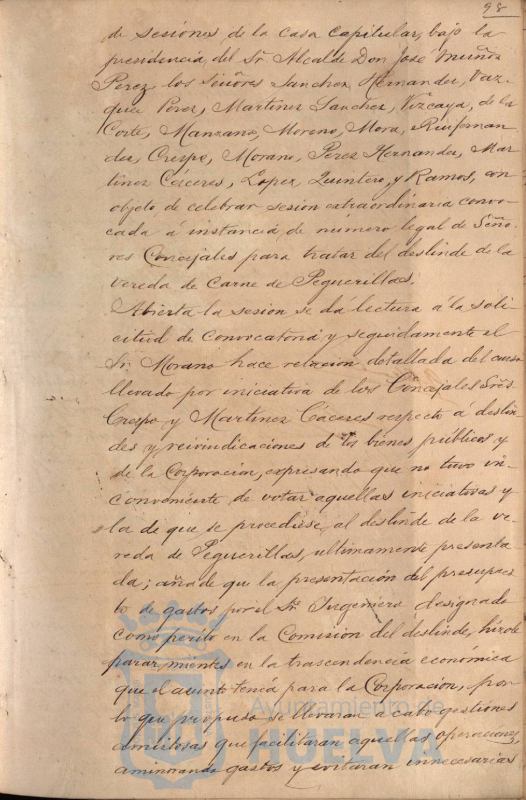 98
de sesiones, de la casa Capitular, bajo la
presidencia del Sr. Alcalde Don José Muñoz
Perez, los Señores Sanchez, Hernandez, Vaz-
quez Perez, Martinez Sanchez, Vizcaya, de la
Corte, Manzano, Moreno, Mora, Ruifernan
dez, Crespo, Morano, Perez Hernandez, Mar
tinez Cáceres, Lopez, Quintero, y Ramos, con
objeto de celebrar sesion extraordinaria convo-
cada a instancia de número legal de Seño-
res Concejales para tratar del deslinde de la
vereda de Carne de Peguerillas.
Abierta la sesion se dá lectura á la soli-
citud de convocatoria y seguidamente el
Sr. Morano hace relacion detallada del curso
llevado por iniciativa de los Concejales Sres
Crespo y Martinez Cáceres respecto a deslin-
des y reivindicaciones de los bienes públicos y
de la Corporacion, expresando que no tuvo in-
conveniente de votar aquellas iniciativas y
la de que se procediese al deslinde de la ve-
reda de Peguerillas, ultimamente presenta
da; añade que la presentación del presupues
to de gastos por el Sr. Ingeniero designado
como perito en la Comision del deslinde, hizole
parar mientes en la trascendencia económica
que el asunto tenía para la Corporacion, por
lo que propuso se llevaran a cabo gestiones
amistosas que facilitaran aquellas operaciones,
aminorando gastos y evitaran innecesarias
Ayuntamiento de
HUELVA